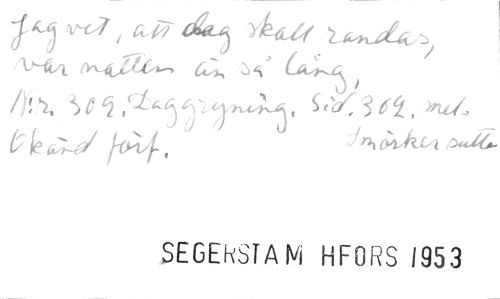 Jag vet, att dag skall randas,
var natten än så lång,
N:r. 309. Daggryning. Sid. 309. mel.
Okänd förf. I mörker sutto
SEGERSTAM HFORS 1953